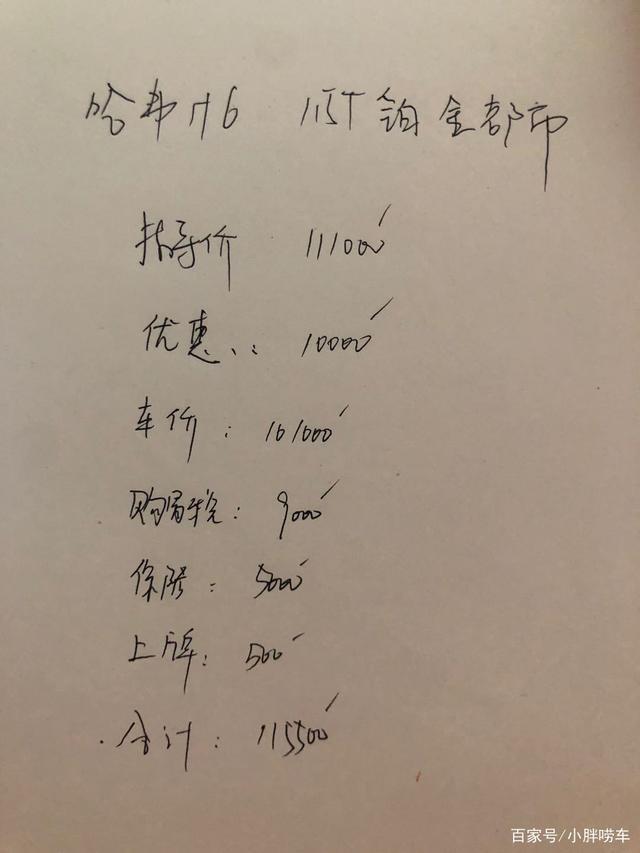 哈弗H6 1.5T铂金都市
指导价 111000
优惠：10000
车价：101000
购置税：9000
保险：5000
上牌：500
合计：115500
百家号/小胖唠车